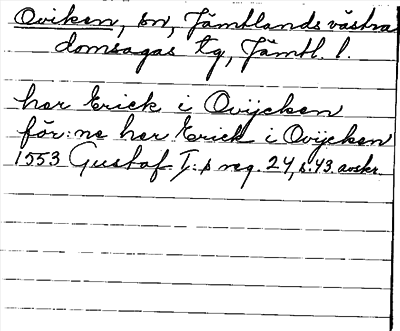 Oviken, sn, Jämtlands västra
domsagas tg, Jämtl. l.
her Erick i Ovijcken
för:ne her Erick i Ovijcken
1553 Gustaf I:s reg. 24, s. 43. avskr.